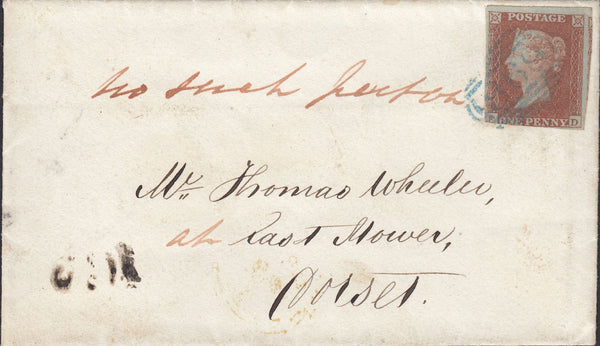 POSTAGE
ONE PENNY
D
no such person
Mr Thomas Wheeler,
at East Stower,
Dorset.